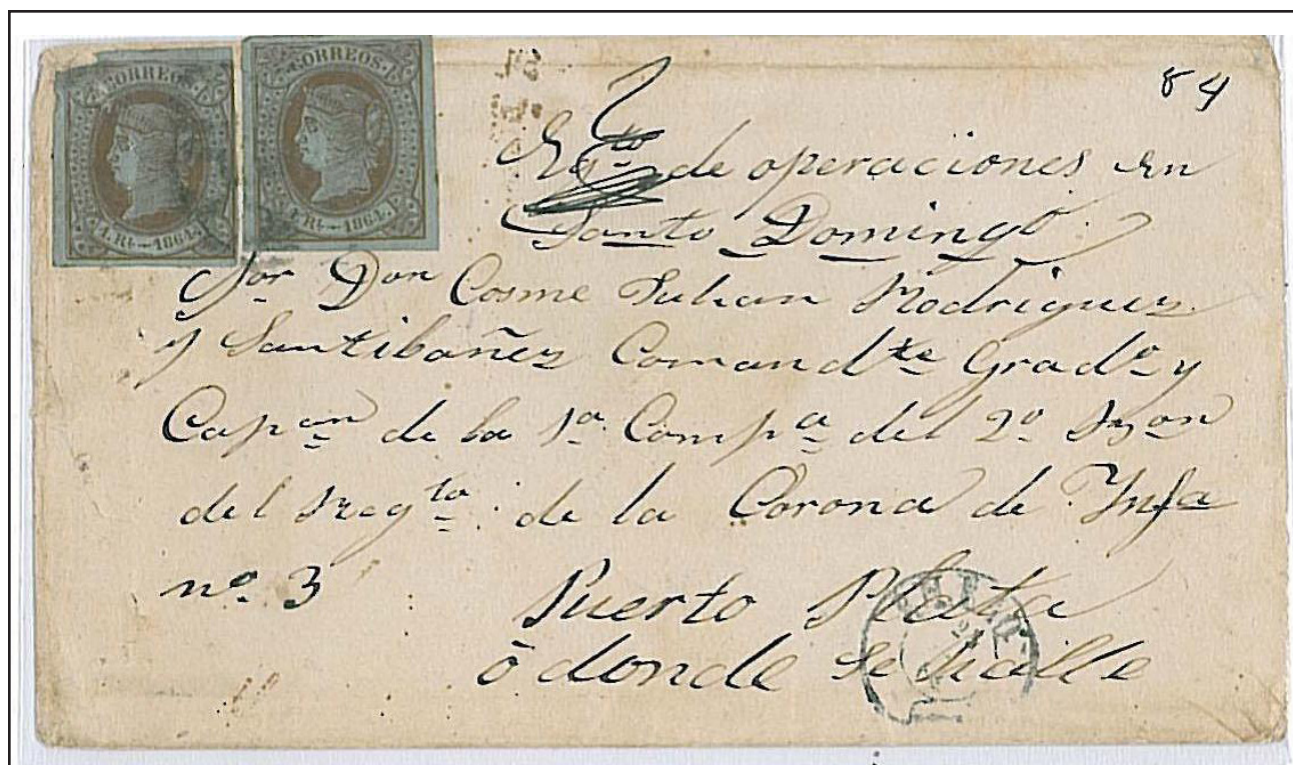 CORREOS. 1
CORREOS. 1
1. Rl. - 1864.
1. Rl. - 1864. P.
84
de operaciones en
Santo Domingo.
Sor Don Cosme Julian Rodriguez
y Santibañez Comandte Grado y
Capan de la 1a Compa del 2o Bzon
del Regto de la Corona de Ynfa
no. 3
Puerto Plata
ō donde se halle